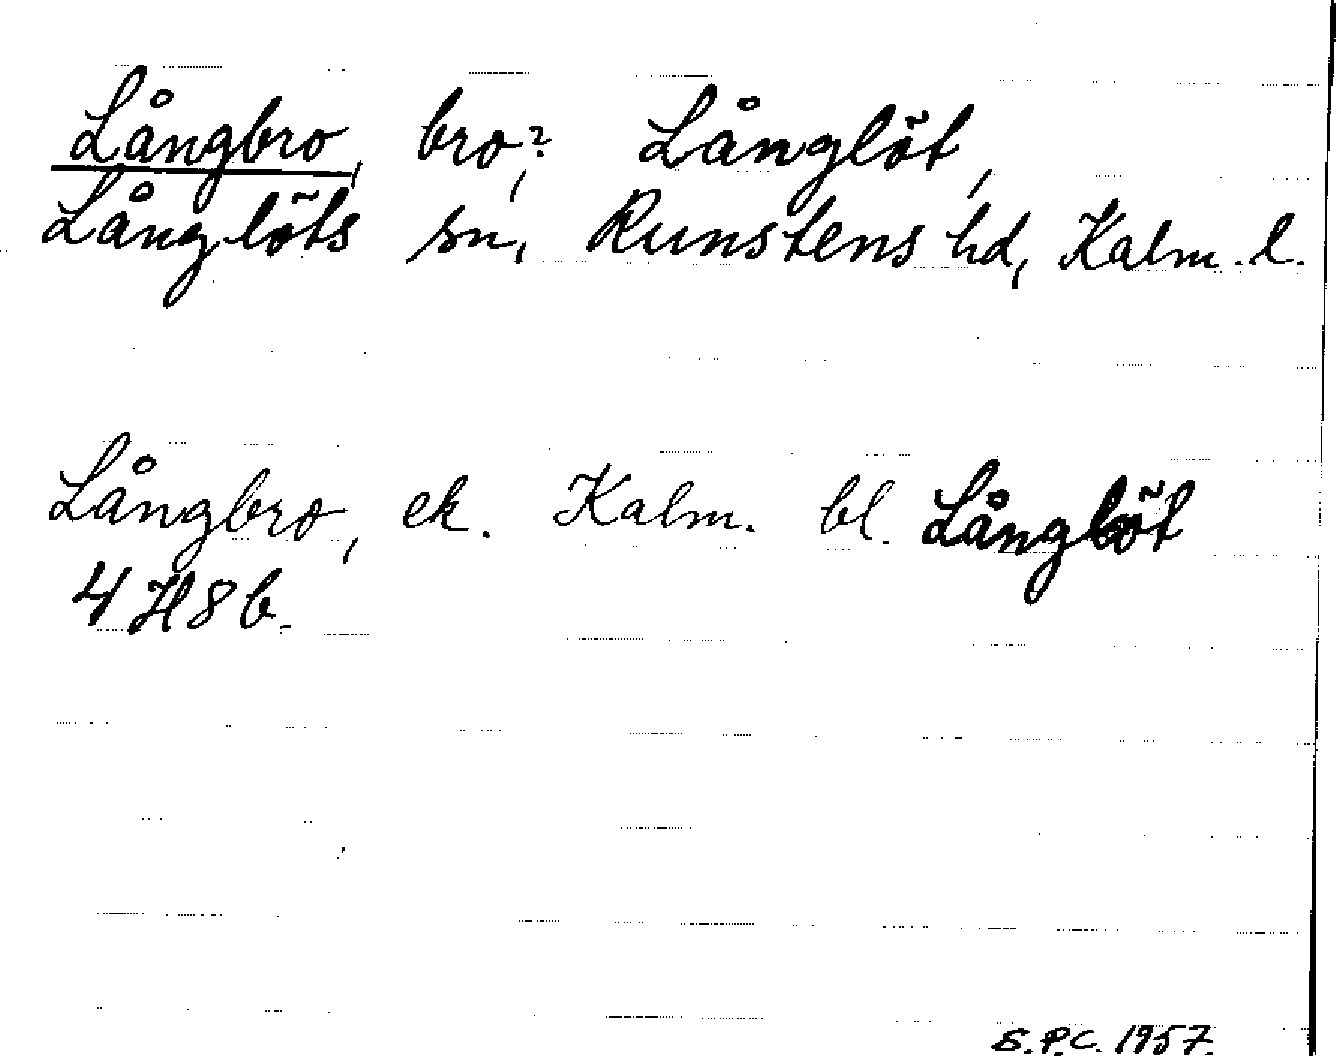 Långbro, bro?, Långlöt,
Långlöts sn, Runstens hd, Kalm. l.
Långbro, ek. Kalm. bl. Långlöt
4 H 8 b.
S.P.C. 1957.